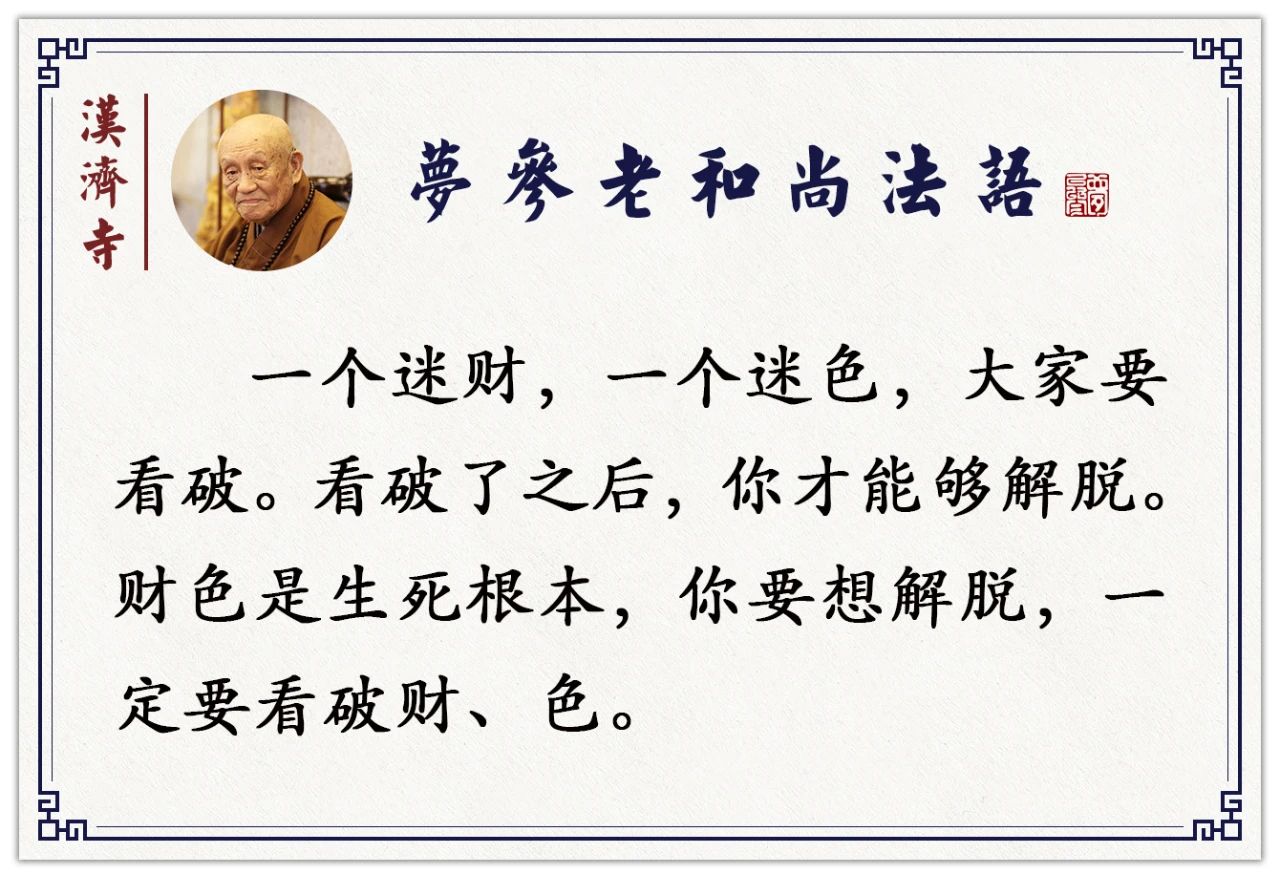 漢濟寺
夢參老和尚法語
一个迷财，一个迷色，大家要
看破。看破了之后，你才能够解脱。
财色是生死根本，你要想解脱，一
定要看破财、色。